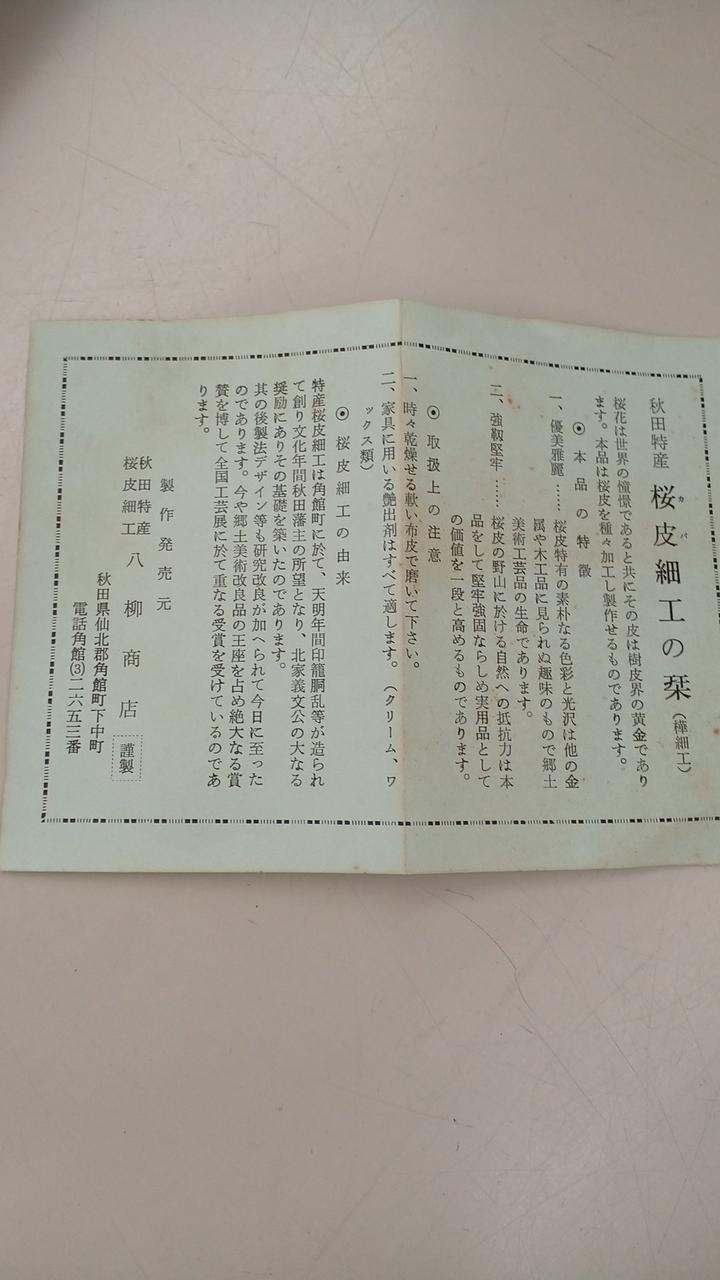 秋田特産 桜皮細工の栞(樺細工)
カバ
桜花は世界の憧憬であると共にその皮は樹皮界の黄金であり
ます。本品は桜皮を種々加工し製作せるものであります。
◉ 本品の特徴
一、優美雅麗……桜皮特有の素朴なる色彩と光沢は他の金
属や木工品に見られぬ趣味のもので郷土
美術工芸品の生命であります。
二、強靱堅牢……桜皮の野山に於ける自然への抵抗力は本
品をして堅牢強固ならしめ実用品として
の価値を一段と高めるものであります。
◉ 取扱上の注意
一、時々乾燥せる軟い布皮で磨いて下さい。
二、家具に用いる艶出剤はすべて適します。(クリーム、ワ
ックス類)
◉ 桜皮細工の由来
特産桜皮細工は角館町に於て、天明年間印籠胴乱等が造られ
て創り文化年間秋田藩主の所望となり、北家義文公の大なる
奨励にありその基礎を築いたのであります。
其の後製法デザイン等も研究改良が加へられて今日に至った
のであります。今や郷土美術改良品の王座を占め絶大なる賞
賛を博して全国工芸展に於て重なる受賞を受けているのであ
ります。
製作発売元
秋田特産
桜皮細工 八柳商店 謹製
秋田県仙北郡角館町下中町
電話角館(3)二六五三番